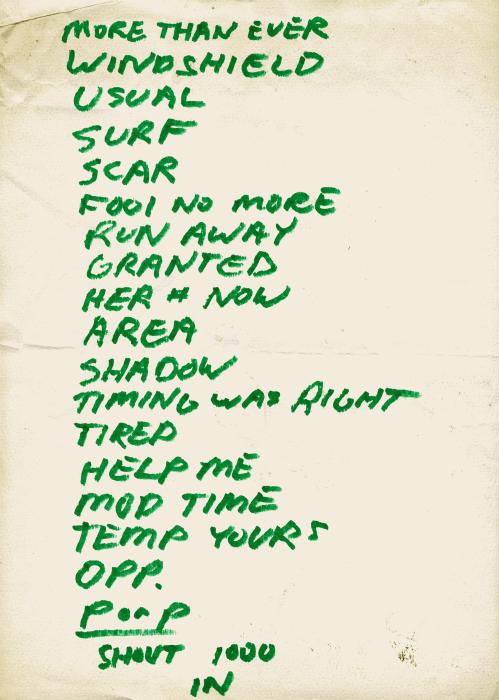 MORE THAN EVER
WINDSHIELD
USUAL
SURF
SCAR
FOOl NO MORE
RUN AWAY
GRANTED
HER # NOW
AREA
SHADOW
TIMING WAS RIGHT
TIRED
HELP ME
MOD TIME
TEMP YOURS
OPP.
POP
SHOUT 1000
IN